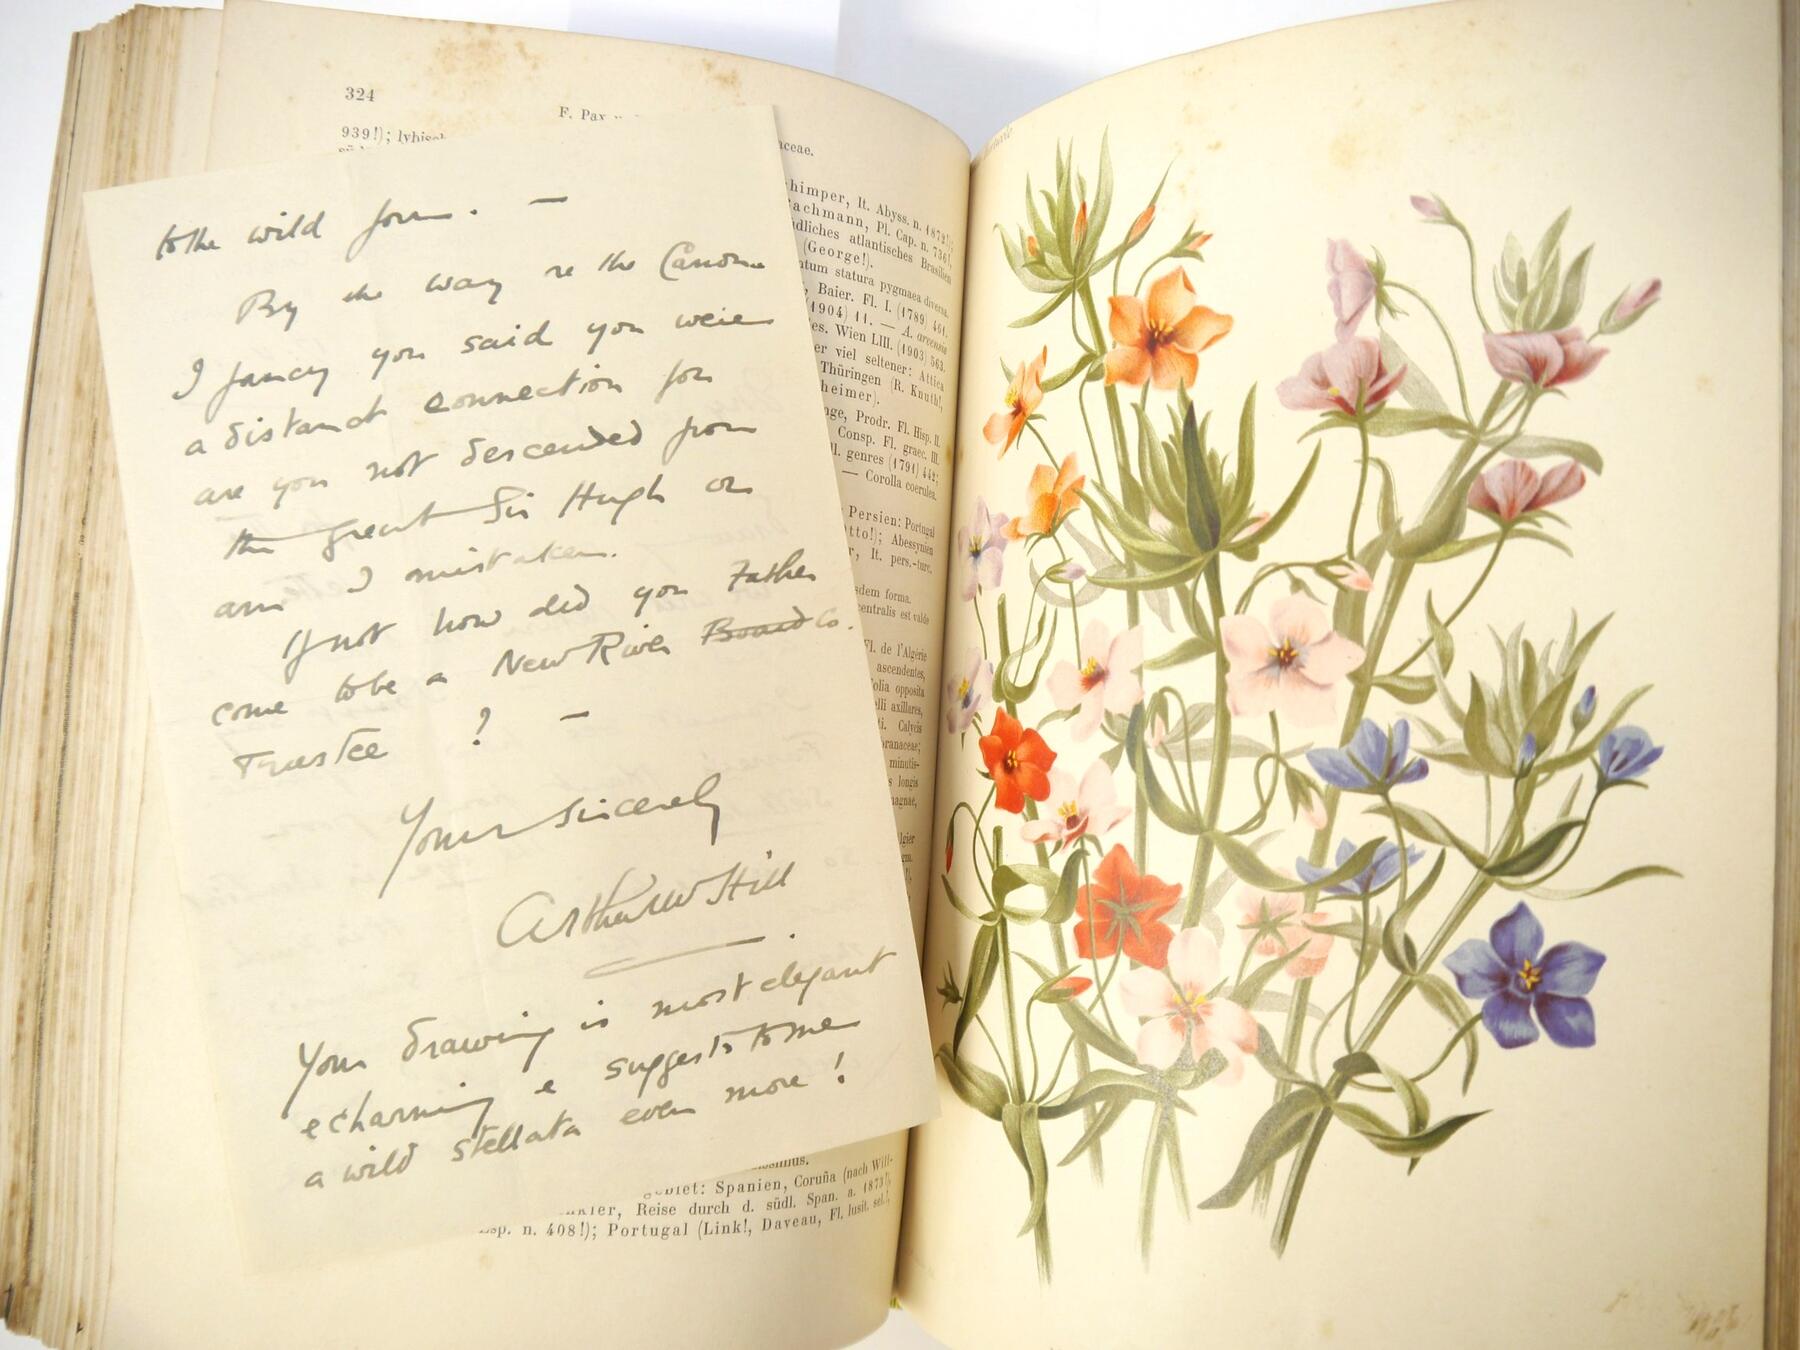 324
F. Pax
939!); lybisch
aceae.
to the wild form. —
By the way re the Canon
I fancy you said you were
a distant connection for
are you not descended from
the great Sir Hugh or
am I mistaken.
If not how did you Father
come to be a New River Board Co.
Trustee ? —
Yours sincerely
Arthur W Hill
Your drawing is most elegant
& charming & suggests to me
a wild stellata even more !
himper, It. Abyss. n. 1872!);
achmann, Pl. Cap. n. 736!,
dliches atlantisches Brasilien
(George!).
ntum statura pygmaea diversa.
, Baier. Fl. I. (1789) 461.
(1904) 11. — A. arvensis
es. Wien LIII. (1903) 563.
er viel seltener: Attica
Thüringen (R. Knuth!,
heimer).
nge, Prodr. Fl. Hisp. II.
Consp. Fl. graec. III.
ll. genres (1791) 442;
— Corolla coerulea.
Persien: Portugal
otto!); Abessynien
r, It. pers.-turc.
sdem forma.
centralis est valde
Fl. de l'Algérie
ascendentes,
folia opposita
elli axillares,
ti. Calycis
oranaceae;
minutis-
s longis
magnae,
lgier
gebiet: Spanien, Coruña (nach Will-
nkler, Reise durch d. südl. Span. a. 1873!,
sp. n. 408!); Portugal (Link!, Daveau, Fl. lusit. sel.!,